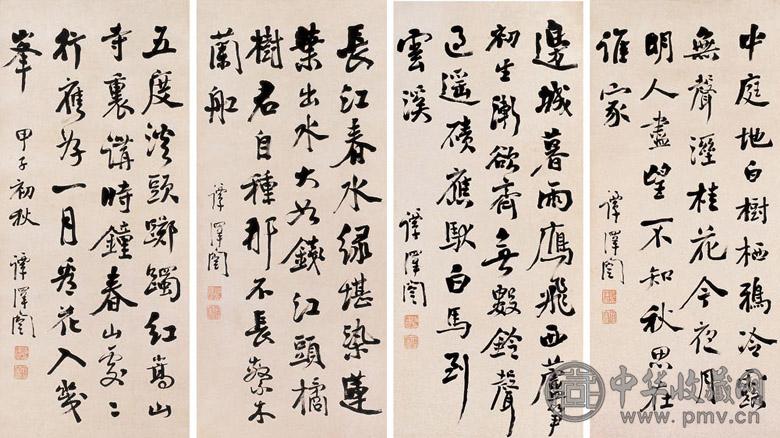 中庭地白樹栖鴉冷露
無聲溼桂花今夜月
明人盡望不知秋思在
誰家
譚澤闓
邊城暮雨鴈飛西蘆筍
初生漸欲齊無數鈴聲
過遥磧應馱白馬到
雲溪
譚澤闓
長江春水綠堪染蓮
葉出水大如錢江頭橘
樹君自種那不長繫木
蘭船
譚澤闓
五度溪頭躑躅紅嵩山
寺裏講時鐘春山處〻
行應好一月看花入幾
峯
甲子初秋 譚澤闓
中华收藏网
www.pmv.cn